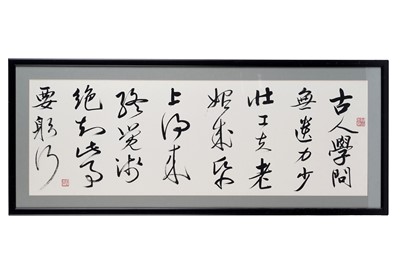 古人學問
無遺力少
壮工夫老
始成紙
上得來
終覺淺
絶知此事
要躬行